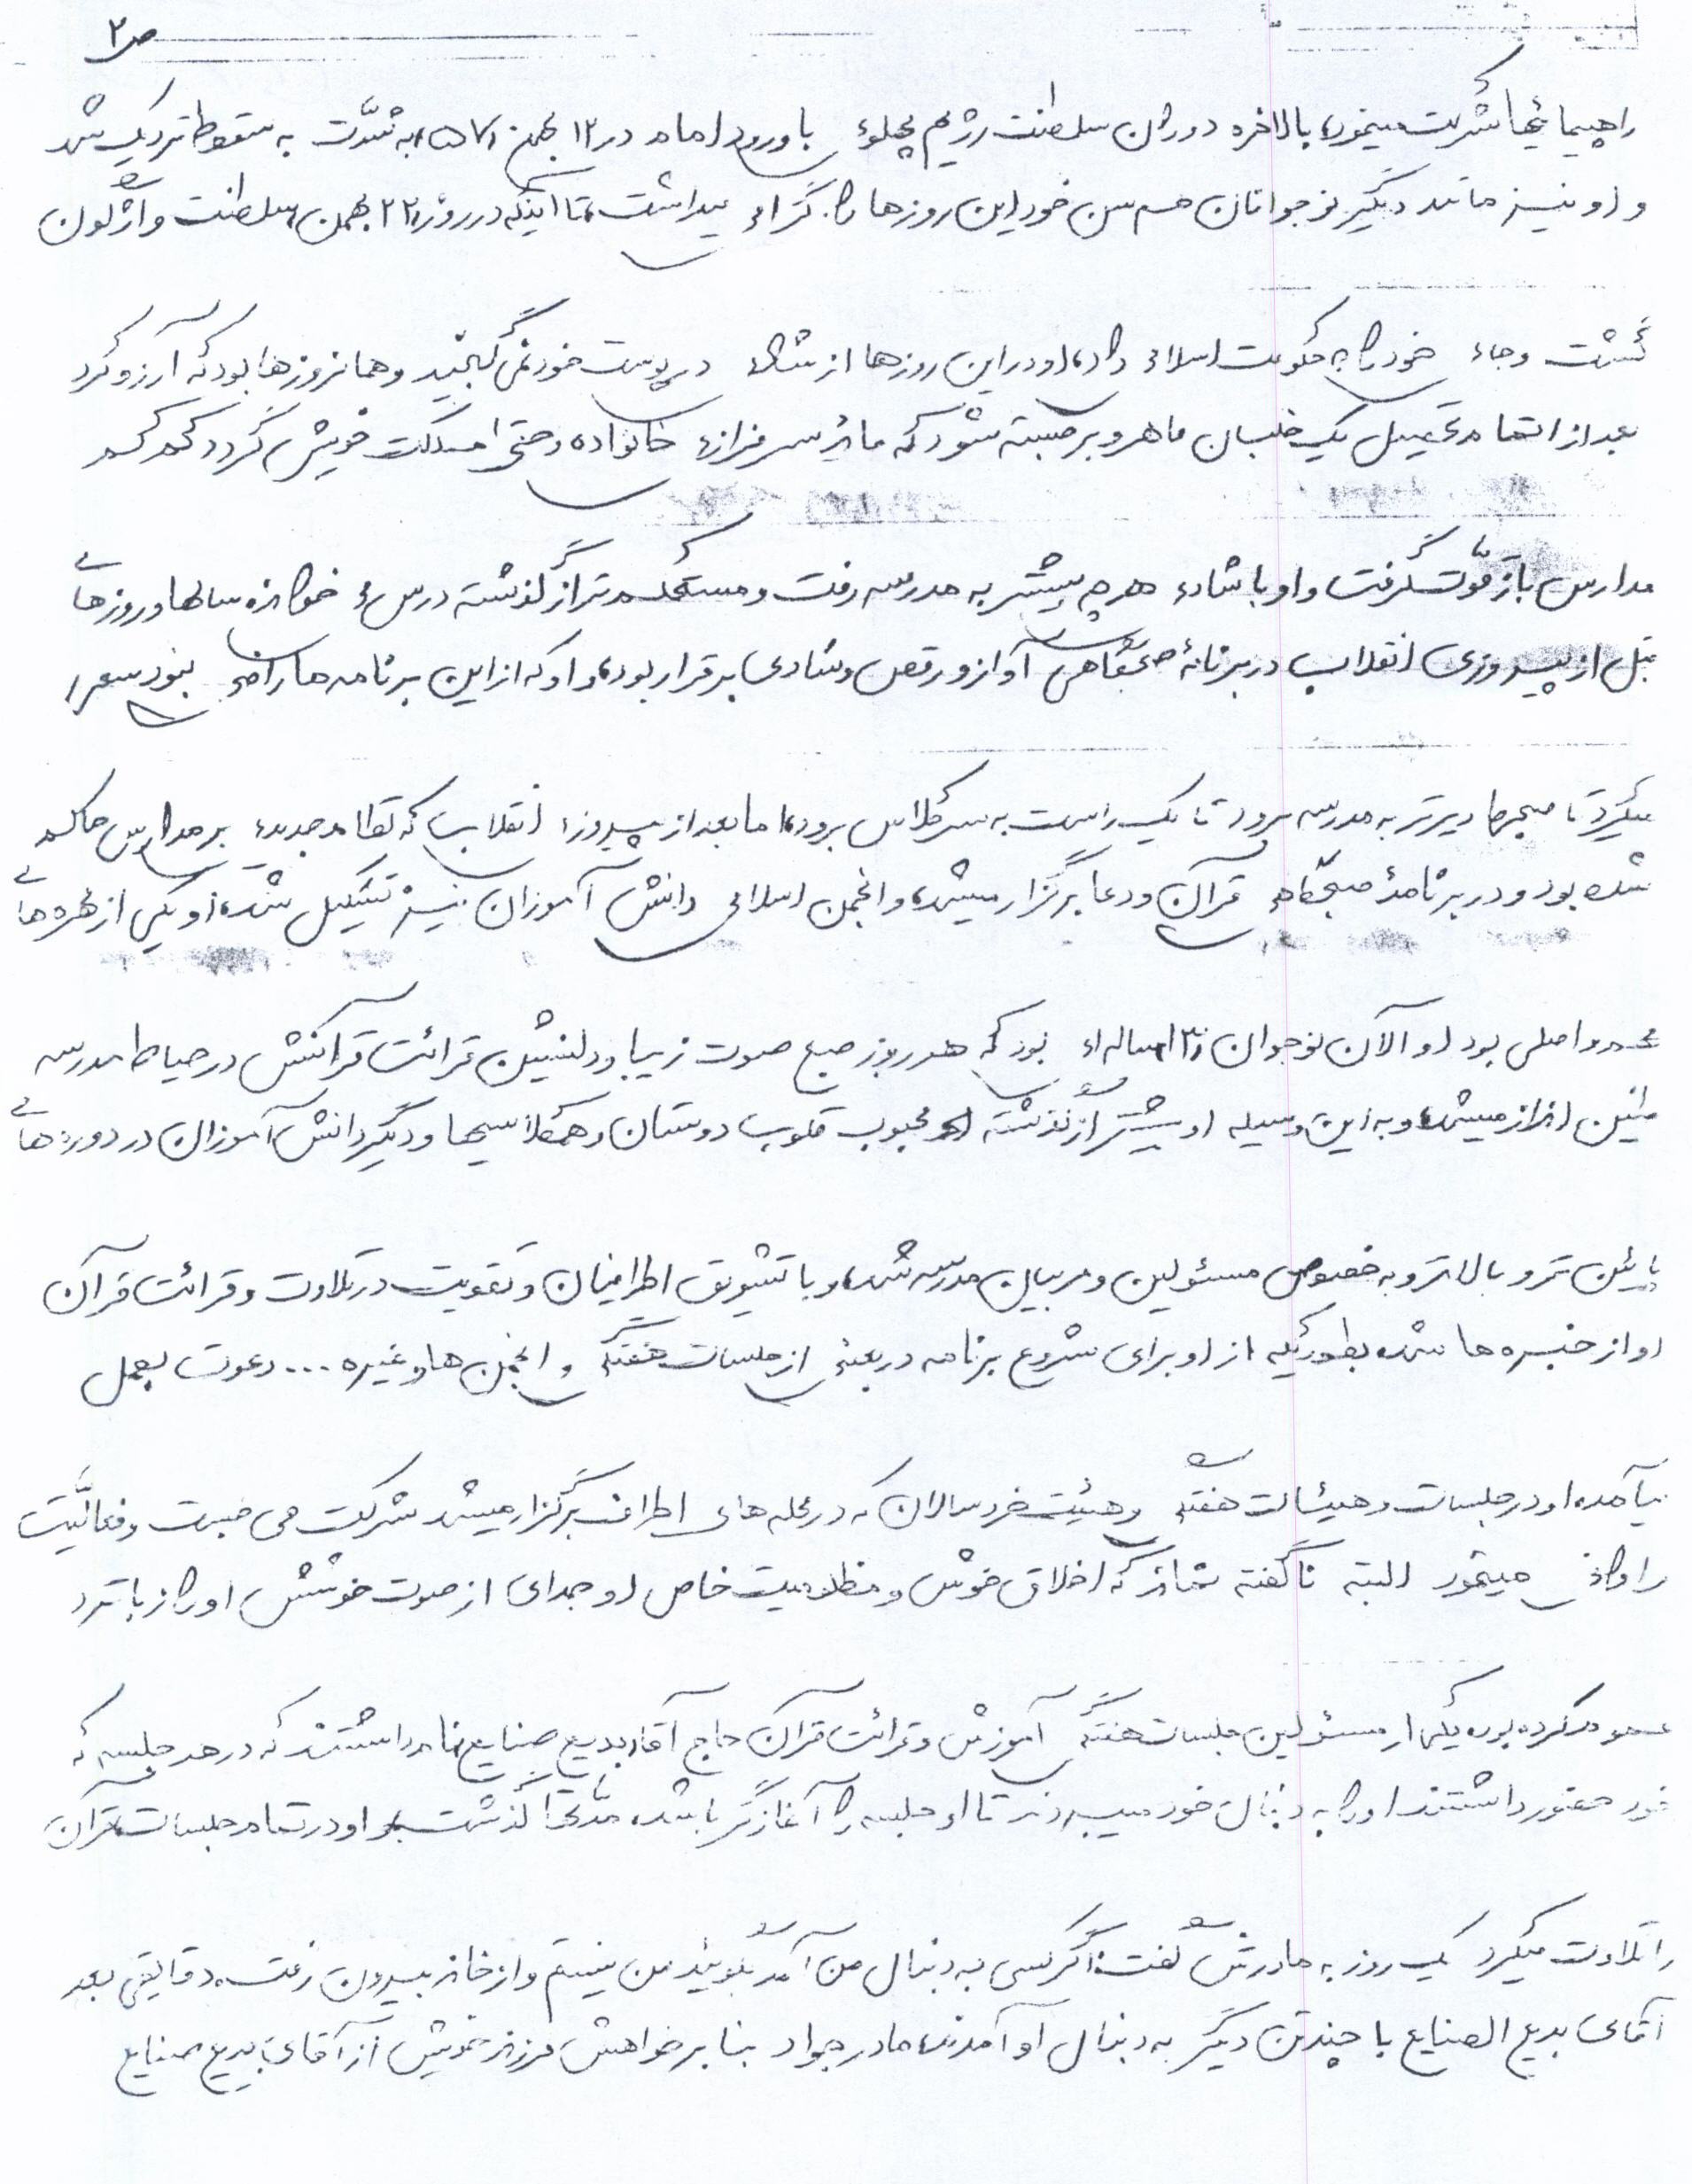 ص۲
راهپیمائیها شرکت مینمود، بالاخره دوران سلطنت رژیم پهلوی با ورود امام در ۱۲ بهمن ۵۷، به شدّت به سقوط نزدیک شد
و او نیز مانند دیگر نوجوانان هم سن خود این روزها را گرامی میداشت، تا اینکه در روز ۲۲ بهمن، سلطنت واژگون
گشت و جای خود را به حکومت اسلامی داد، او در این روزها از شادی در پوست خود نمی گنجید و همانروزها بود که آرزو کرد
بعد از اتمام تحصیل یک خلبان ماهر و برجسته شود که مایۀ سرفرازی خانواده و حتی مملکت خویش گردد کم کم
مدارس باز قوّت گرفت و او با شادی هر چه بیشتر به مدرسه رفت و مستحکم تر از گذشته درس خواند سالها و روزهای
قبل از پیروزی انقلاب در برنامۀ صبحگاهی آواز و رقص و شادی برقرار بود، و او که از این برنامه ها راضی نبود سعی
میکرد تا صبحها دیرتر به مدرسه برود تا یک راست به سر کلاس برود، اما بعد از پیروزی انقلاب که نظام جدیدی بر مدارس حاکم
شده بود و در برنامۀ صبحگاهی قرآن و دعا برگزار میشد، و انجمن اسلامی دانش آموزان نیز تشکیل شد، او یکی از مهره های
عمده و اصلی بود او الآن نوجوان ۱۳ ساله ای بود که هر روز صبح صوت زیبا و دلنشین قرائت قرآنش در حیاط مدرسه
طنین انداز میشد، و به این وسیله او بیشتر از گذشته محبوب قلوب دوستان و همکلاسیها و دیگر دانش آموزان در دوره های
پایین تر و بالاتر و به خصوص مسئولین و مربیان مدرسه شد، و با تشویق اطرافیان و تقویت در تلاوت و قرائت قرآن
او از خبره ها شد، بطوریکه از او برای شروع برنامه در بعضی از جلسات هفتگی و انجمن ها و غیره ... دعوت بعمل
میآمد، او در جلسات و هیئات هفتگی و هیئت خردسالان که در محله های اطراف برگزار میشد شرکت می جست و فعالیّت
را وافی مینمود البته ناگفته نماند که اخلاق خوش و مظلومیت خاص او جدای از صوت خوشش او را زبانزد
عموم کرده بود یکی از مسئولین جلسات هفتگی آموزش و قرائت قرآن حاج آقای بدیع صنایع نام داشتند که در هر جلسه که
خود حضور داشتند او را به دنبال خود میبردند تا او جلسه را آغازگر باشد، مدتی گذشت او در تمام جلسات قرآن
را تلاوت میکرد یک روز به مادرش گفت: اگر کسی به دنبال من آمد بگویید من نیستم و از خانه بیرون رفت، دقایقی بعد
آقای بدیع الصنایع با چند تن دیگر به دنبال او آمدند، مادر جواد بنا بر خواهش فرزند خویش از آقای بدیع صنایع